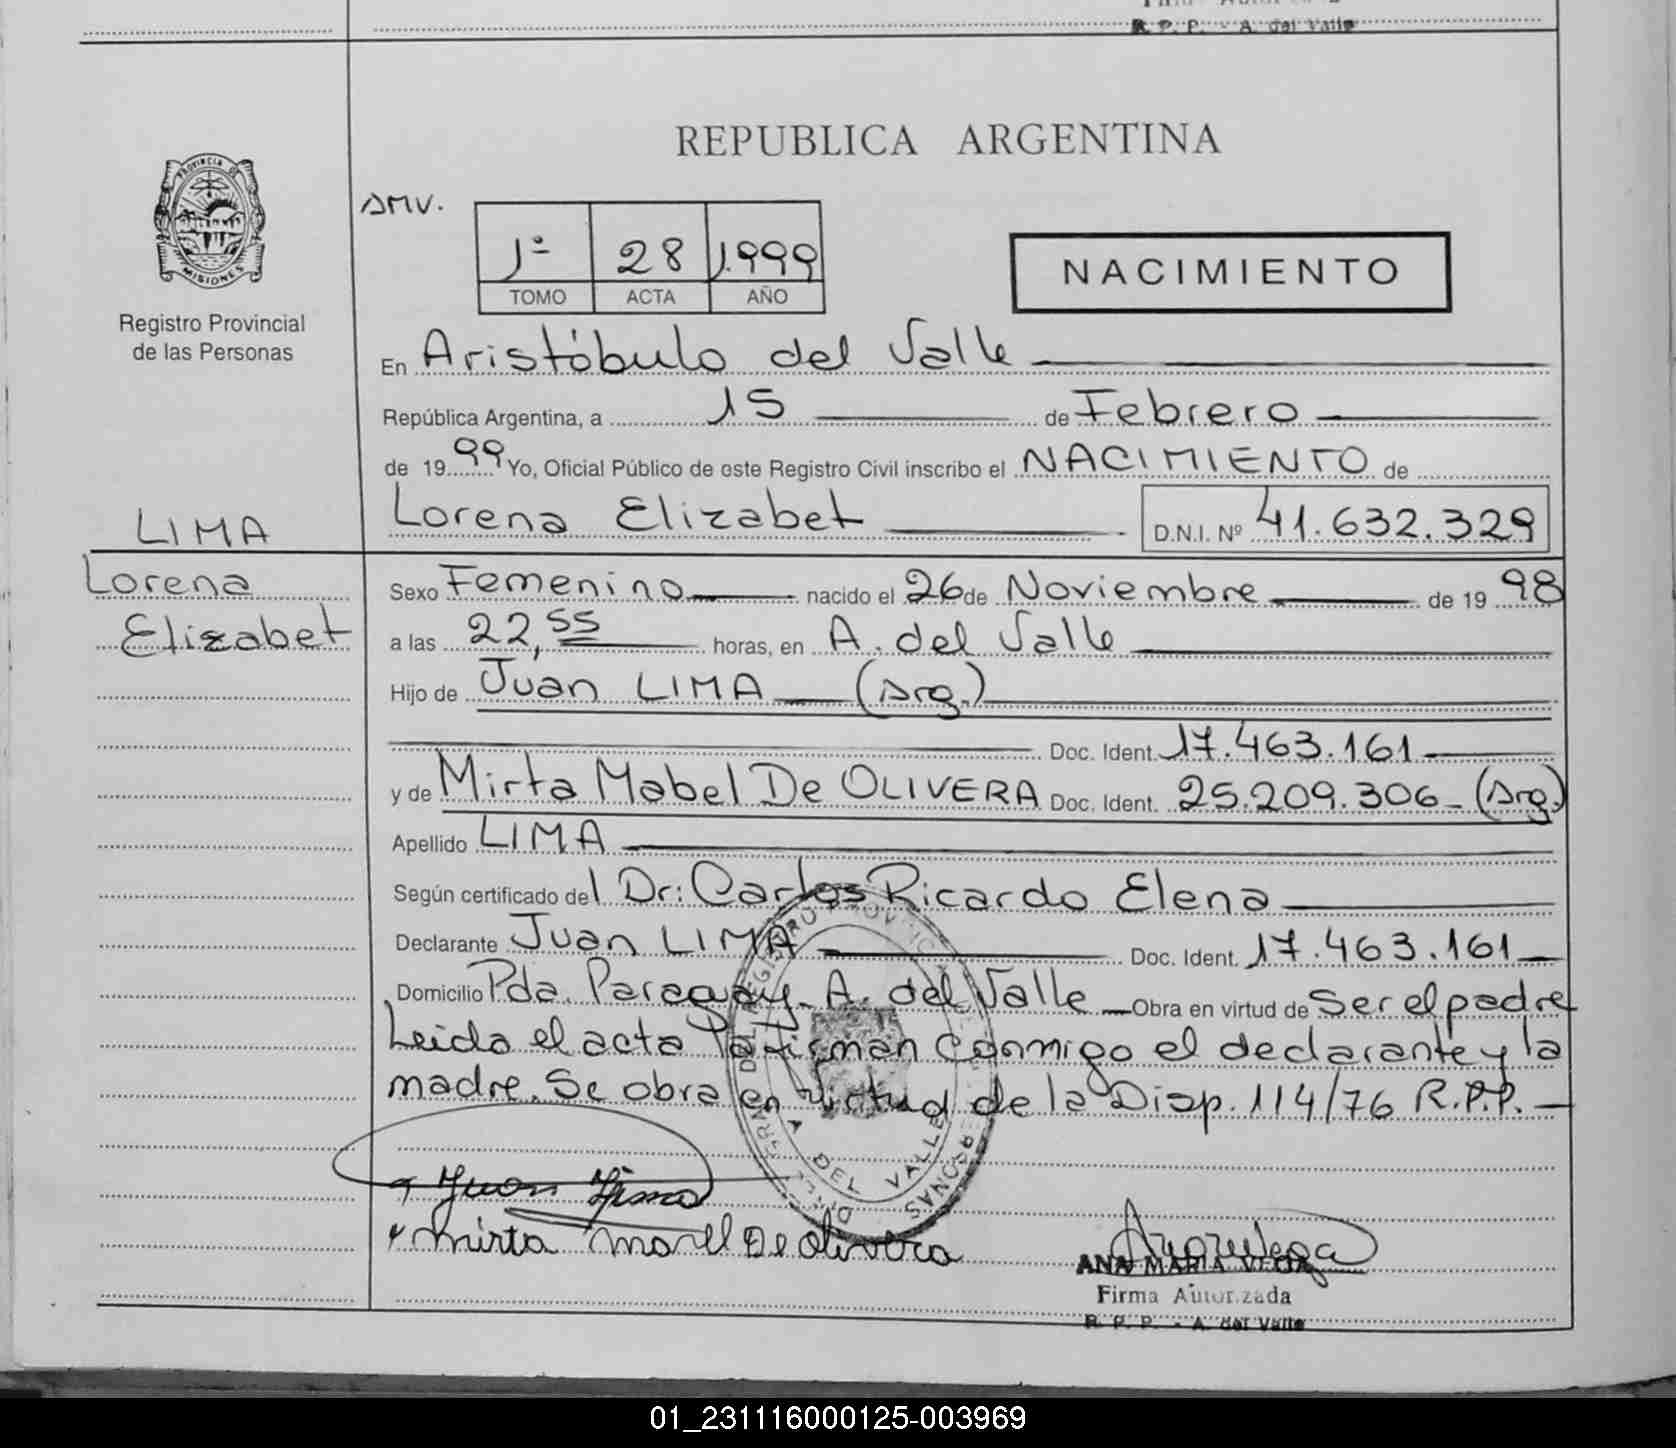 R. P. P. - A. del Valle
REPUBLICA ARGENTINA
PROVINCIA DE
MISIONES
SMV.
1º 28 1.999
TOMO ACTA AÑO
NACIMIENTO
Registro Provincial
de las Personas
En Aristóbulo del Valle
República Argentina, a 15 de Febrero
de 1999 Yo, Oficial Público de este Registro Civil inscribo el NACIMIENTO de
Lorena Elizabet D.N.I. Nº 41.632.329
LIMA
Lorena
Elizabet
Sexo Femenino nacido el 26 de Noviembre de 1998
a las 22,55 horas, en A. del Valle
Hijo de Juan LIMA (Arg.)
Doc. Ident. 17.463.161
y de Mirta Mabel De OLIVERA Doc. Ident. 25.209.306 - (Arg.)
Apellido LIMA
Según certificado del Dr: Carlos Ricardo Elena
Declarante Juan LIMA Doc. Ident. 17.463.161
Domicilio Pda. Paraguay - A. del Valle Obra en virtud de Ser el padre
Leida el acta la firman conmigo el declarante y la
madre. Se obra en virtud de la Disp. 114/76 R.P.P.
A. DEL VALLE
Juan Lima
Mirta Mabel De Olivera
ANA MARIA VEGA
Firma Autorizada
R. P. P. - A. del Valle
01_231116000125-003969